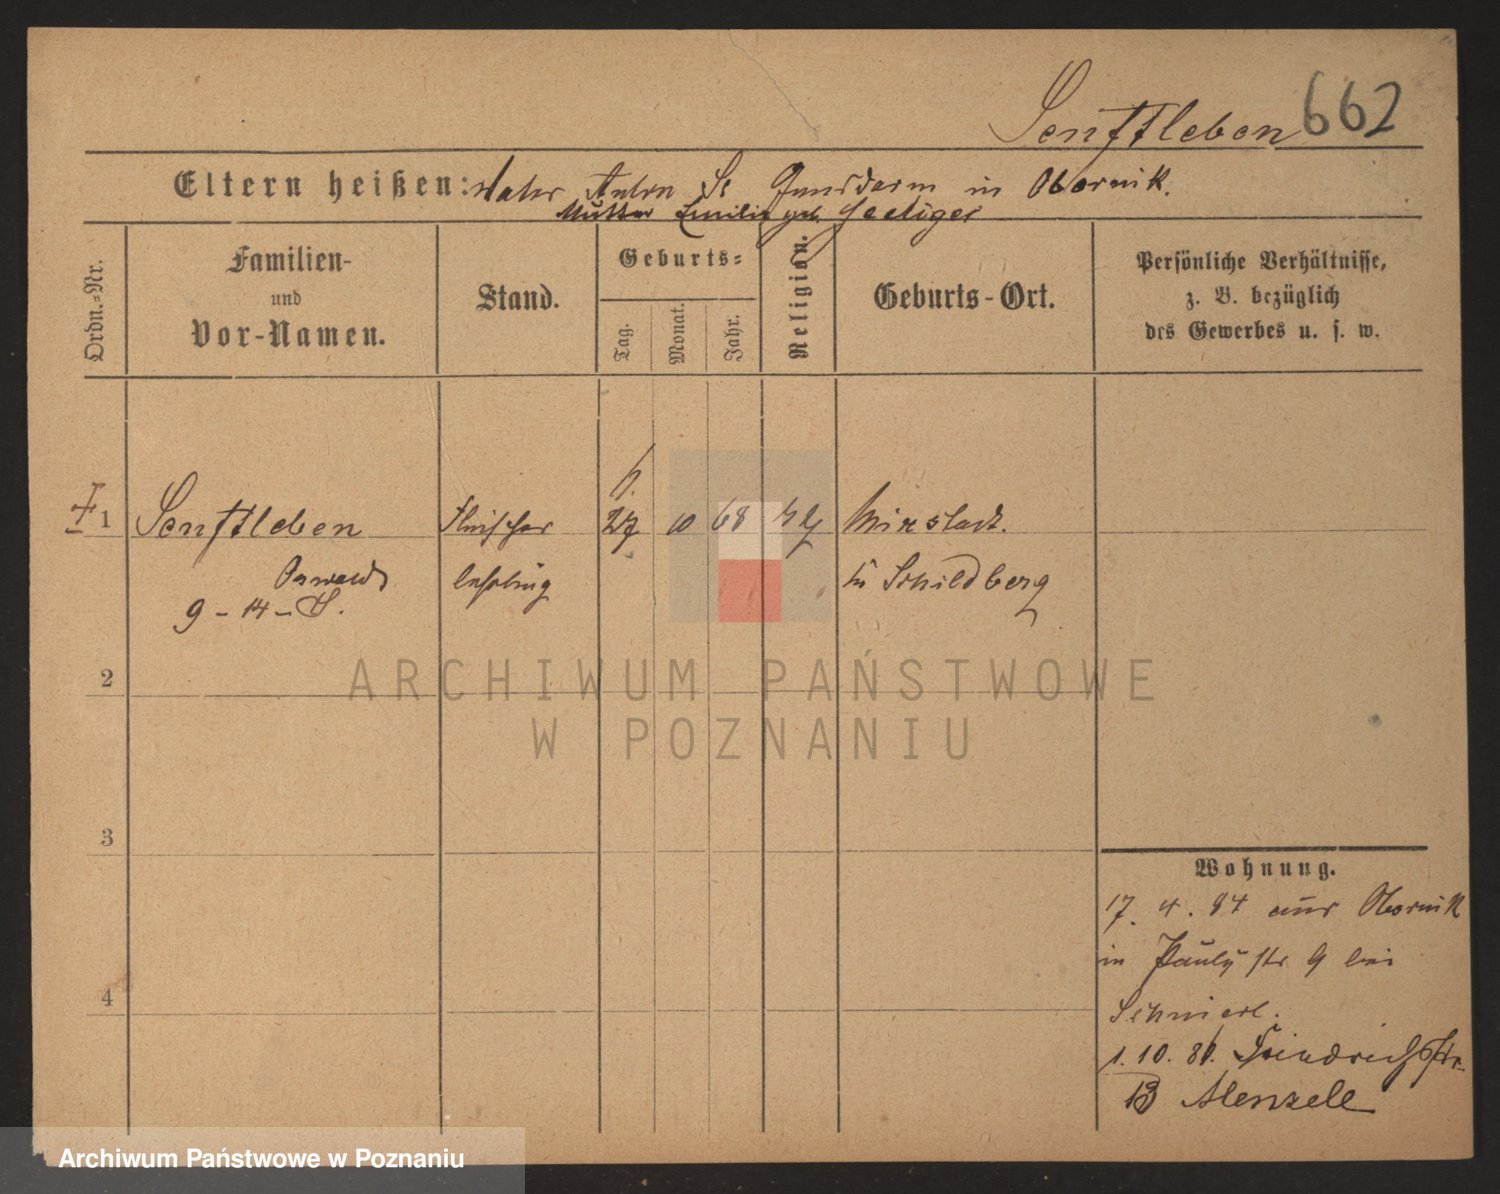 Senftleben 662
Eltern heißen: Vater Anton S. Gendarm in Obornik.
Mutter Emilie geb. Seeliger
Ordn.-Nr.
Familien-
und
Vor-Namen.
Stand.
Geburts-
Tag.
Monat.
Jahr.
Religion.
Geburts-Ort.
Persönliche Verhältnisse,
z. B. bezüglich
des Gewerbes u. s. w.
1 Senftleben Fleischer 27 10 68 Mixstadt.
Oswald lehrling in Schildberg
9-14-S.
2
3
4
Wohnung.
17. 4. 84 aus Obornik
in Pauly str. 9 bei
1. 10. 86. Friedrichstr.
13 Menzele
ARCHIWUM PAŃSTWOWE
W POZNANIU
Archiwum Państwowe w Poznaniu